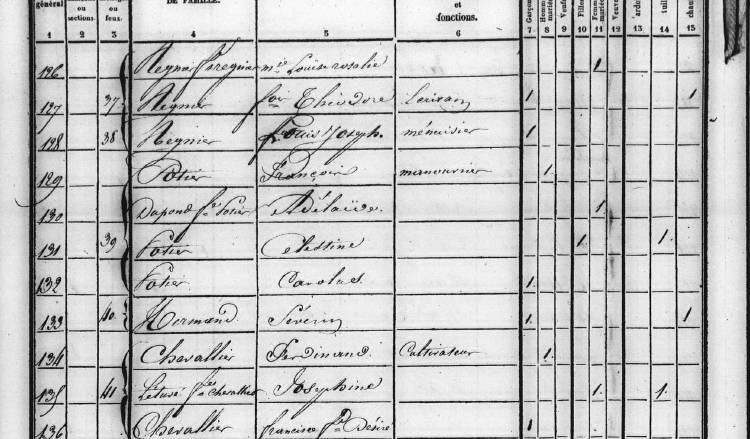 général ou sections. ou feux. DE FAMILLE. et fonctions. Garçons Hommes mariés Veufs Filles Femmes mariées Veuves ardo tuil chau
1 2 3 4 5 6 7 8 9 10 11 12 13 14 15
126 Regnier mie Louise rosalie 1
127 37 Regnier fois Théodore 1 1
128 38 Regnier Louis Joseph. ménuisier 1
129 Potier François manouvrier 1
130 Dupond fe Potier Adélaïde. 1
131 39 Potier Célestine 1 1.
132 Potier 1
133 40 Hermand Sévérin 1 1
134 Chevallier Ferdinand. Cultivateur 1
135 41 fe Chevallier Joséphine 1 1.
136 Chevallier françisce Désiré 1